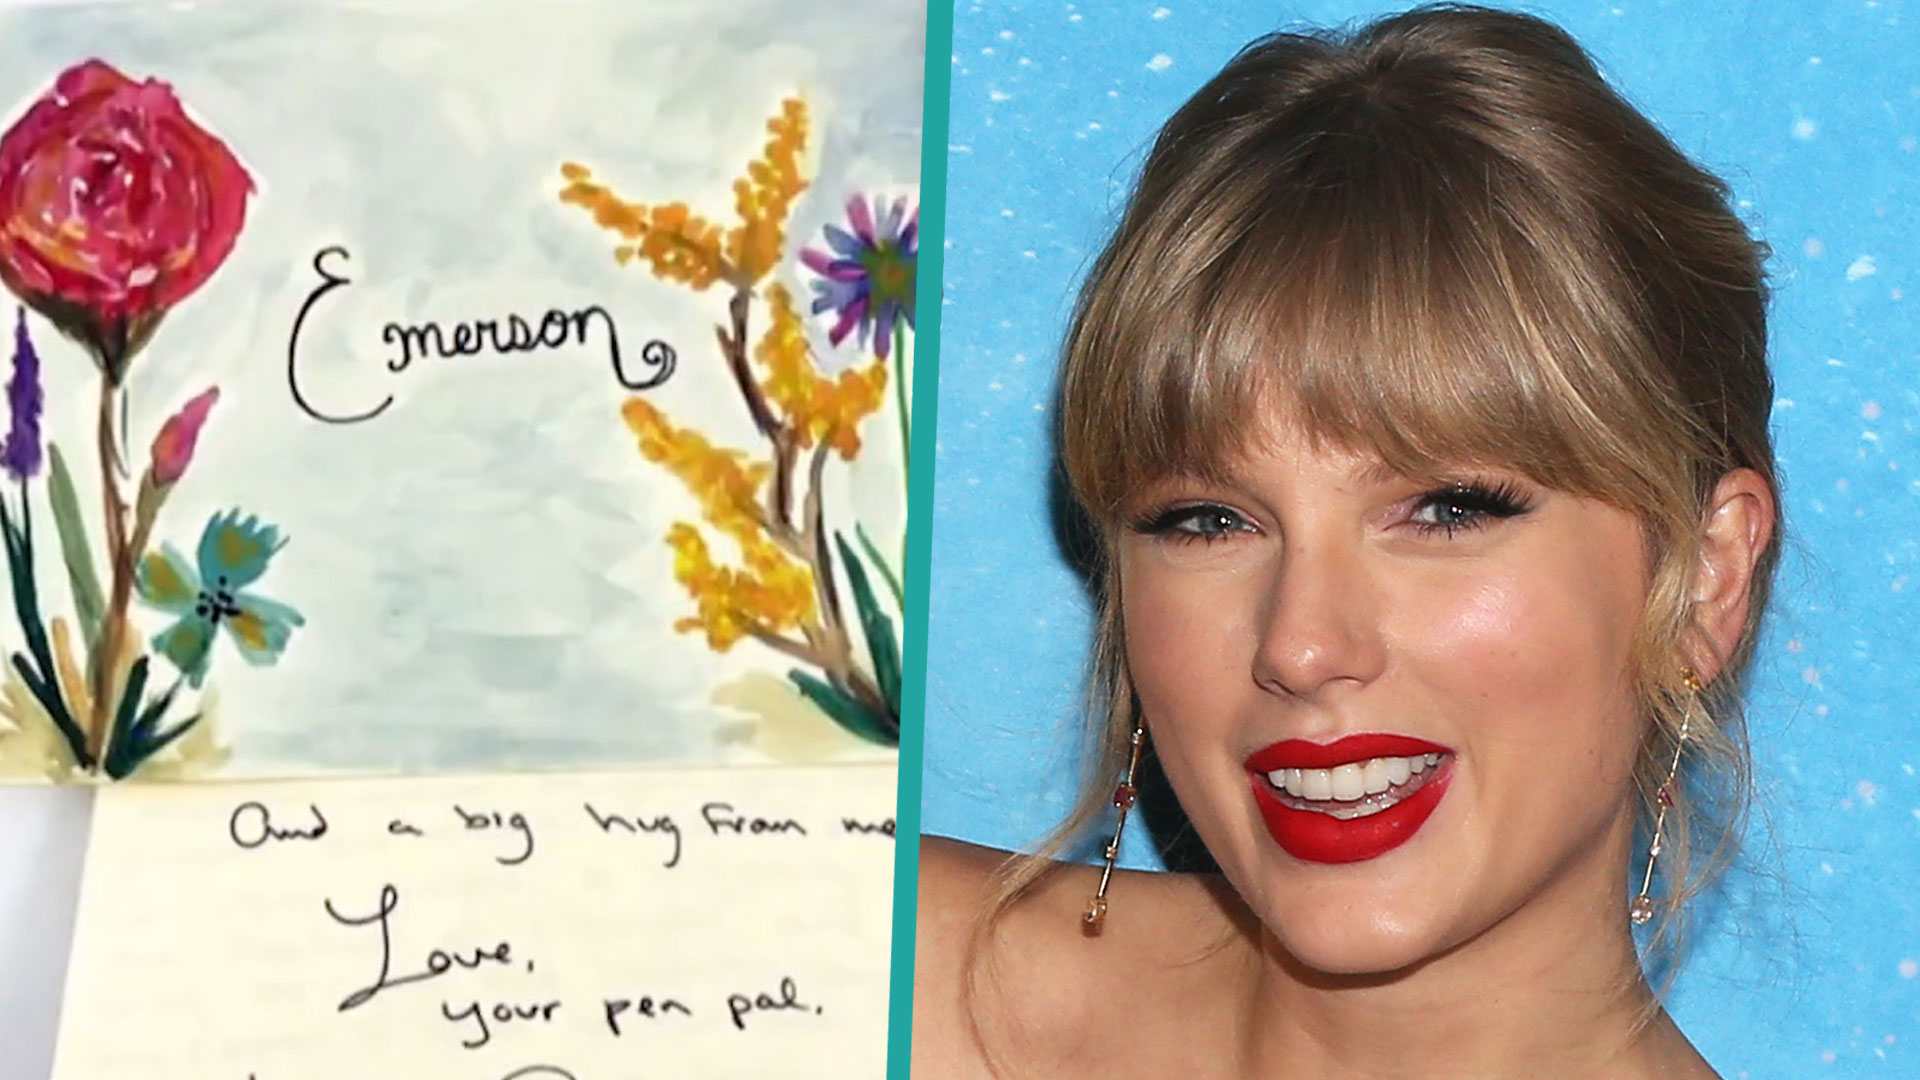 Emerson
And a big hug from me
Love,
your pen pal.